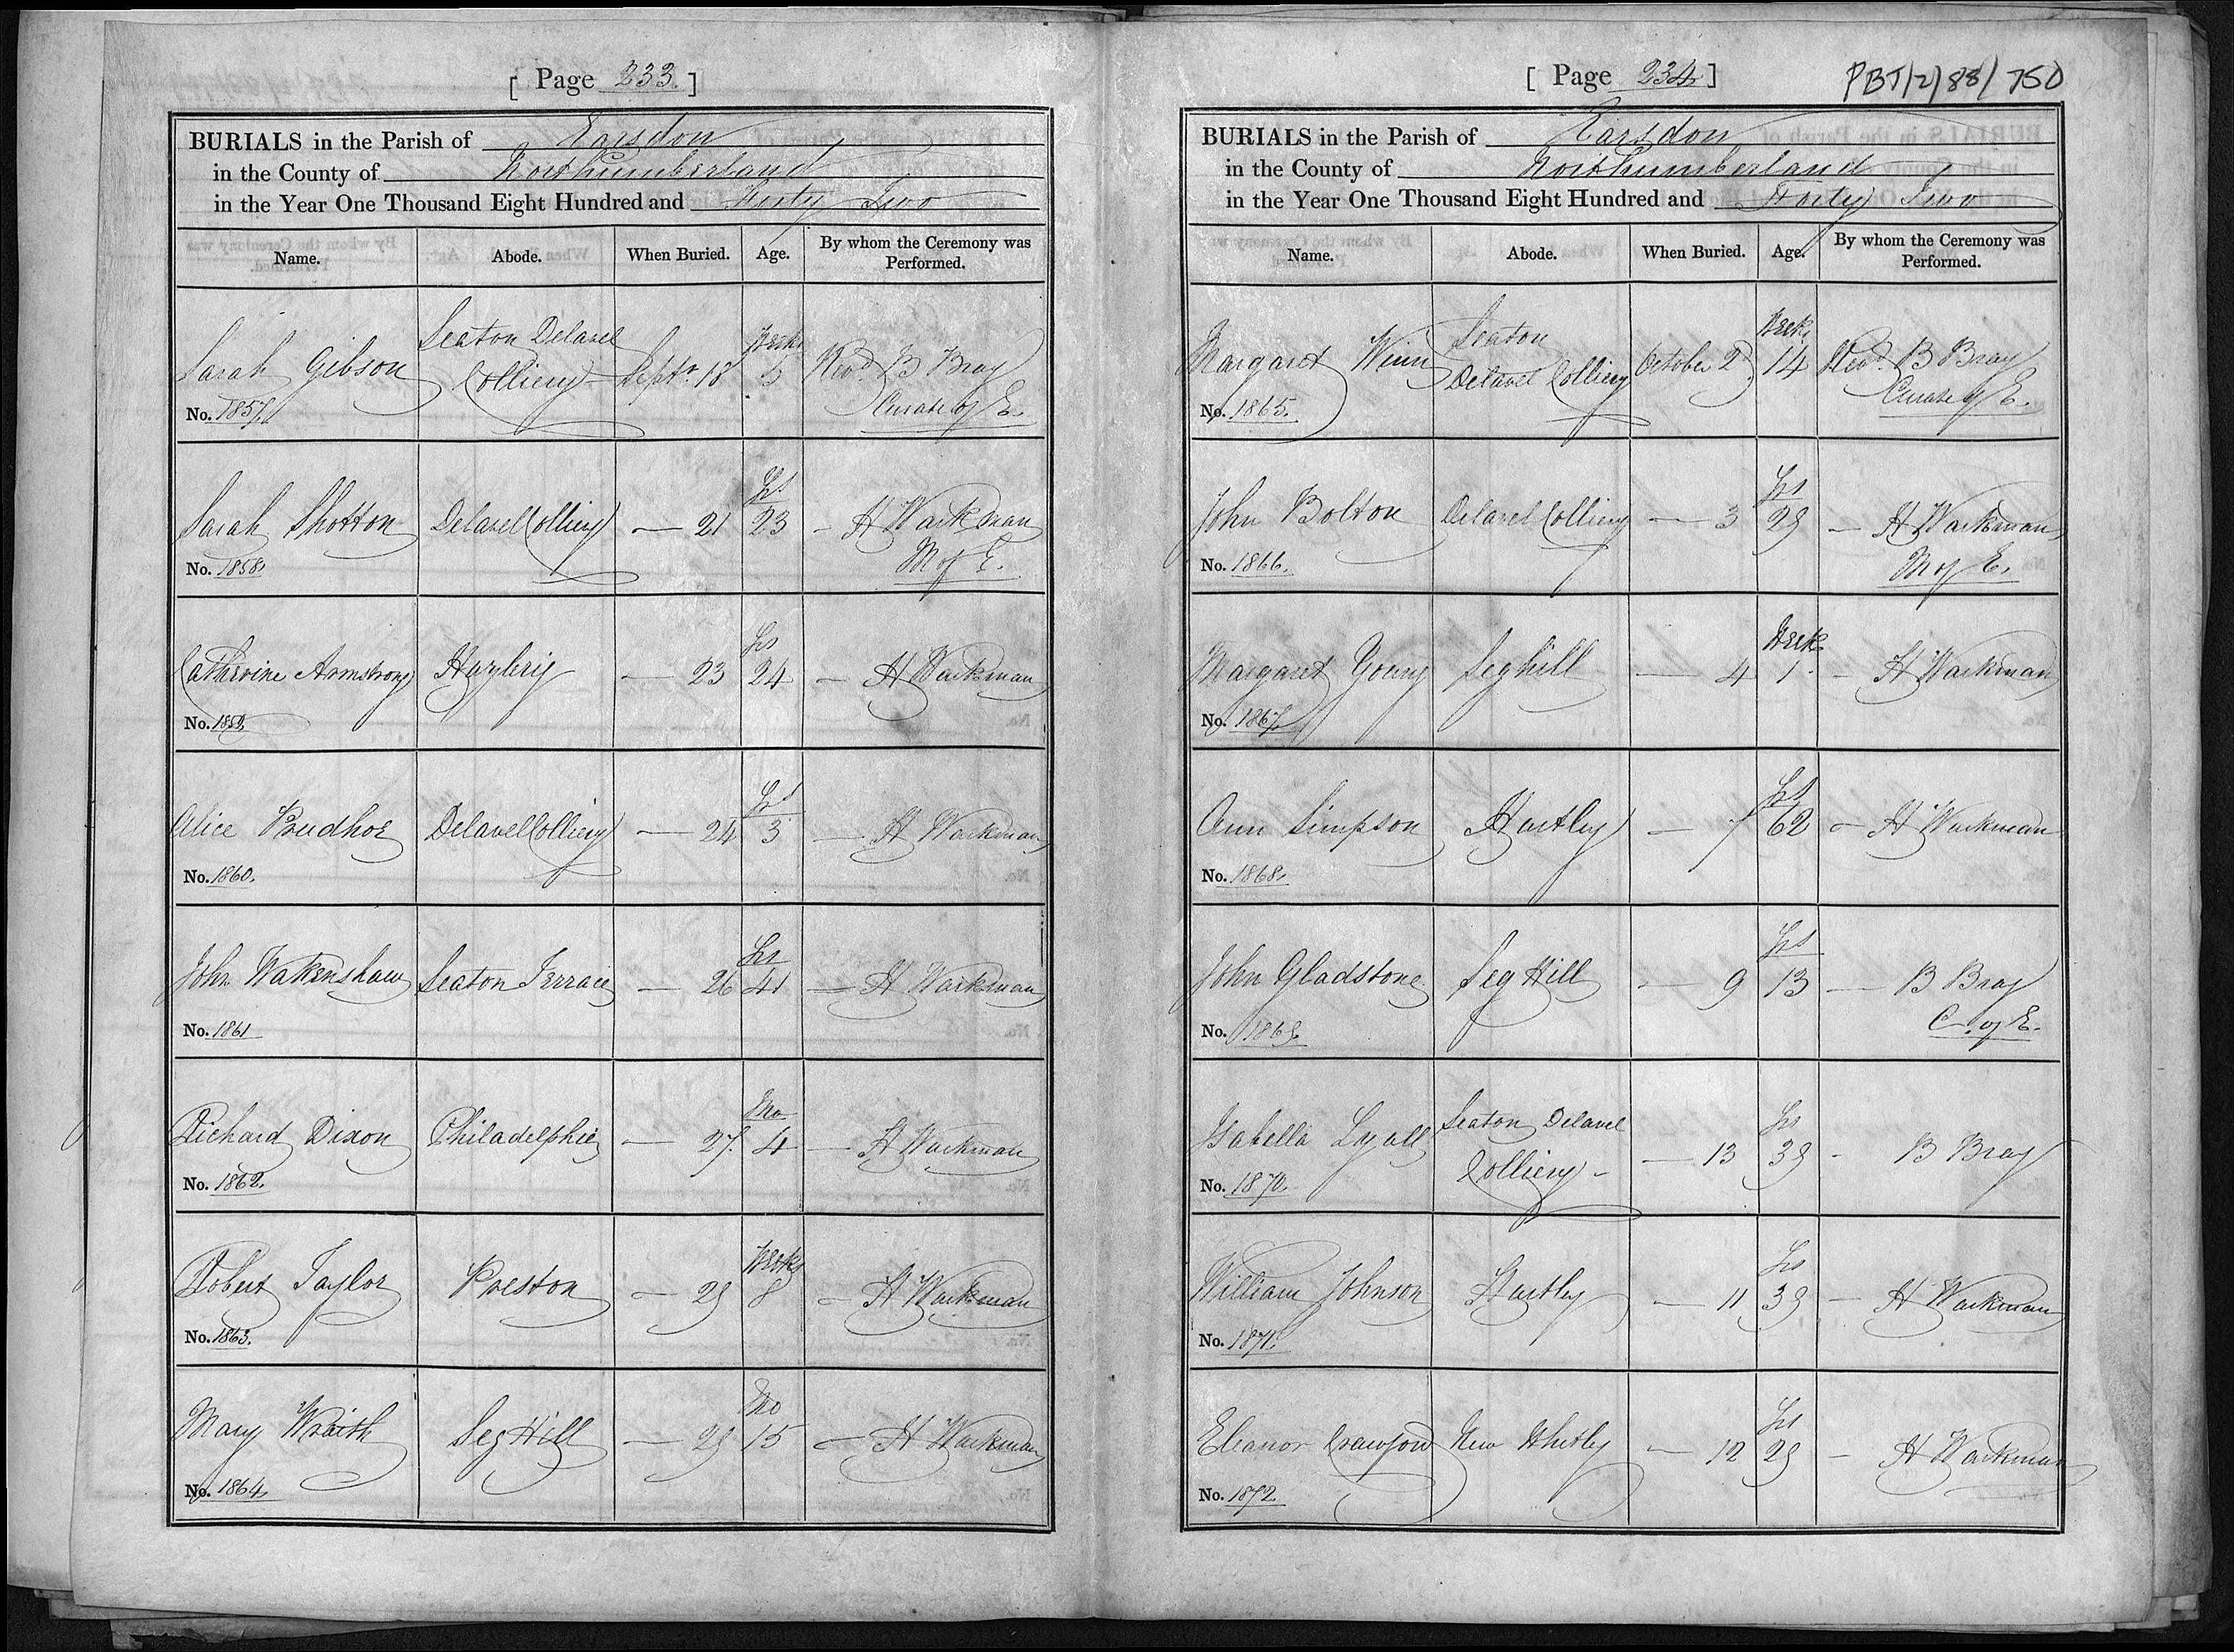 [ Page 233. ]
BURIALS in the Parish of Earsdon
in the County of Northumberland
in the Year One Thousand Eight Hundred and Forty Two
Name. Abode. When Buried. Age. By whom the Ceremony was Performed.
Sarah Gibson Seaton Delavel Colliery Septr. 18 Weeks 5 Revd. B Bray Curate of E.
No. 1857.
Sarah Shotton Delavel Colliery — 21 Yrs 23 — H Warkman M of E.
No. 1858.
Catherine Armstrong — 23 Yrs 24 — H Warkman
No. 1859.
Alice Prudhoe Delavel Colliery — 24 Yrs 3 — H Warkman
No. 1860.
John Wakenshaw Seaton Terrace — 26 Yrs 41 — H Warkman
No. 1861
Richard Dixon Philadelphia — 27. Mo 4 — H Warkman
No. 1862.
Robert Taylor Preston — 29 Weeks 8 — H Warkman
No. 1863.
Mary Wraith Seg Hill — 29 Mo 15 — H Warkman
No. 1864.
[ Page 234 ]
PBT/2/88/750
BURIALS in the Parish of Earsdon
in the County of Northumberland
in the Year One Thousand Eight Hundred and Forty Two
Name. Abode. When Buried. Age. By whom the Ceremony was Performed.
Margaret Winn Seaton Delavel Colliery October 2d. Weeks 14 Revd. B Bray Curate of E.
No. 1865.
John Bolton Delavel Colliery — 3 Yrs 29 — H Warkman M of E.
No. 1866.
Margaret Young Seghill — 4 Week 1 — H Warkman
No. 1867.
Ann Simpson Hartley — 7 Yrs 62 — H Warkman
No. 1868.
John Gladstone Seg Hill — 9 Yrs 13 — B Bray C. of E.
No. 1869.
Isabella Lyall Seaton Delavel Colliery — 13 Yrs 39 - B Bray
No. 1870.
William Johnson Hartley — 11 Yrs 39 — H Warkman
No. 1871.
Eleanor Crawford New Whitley — 12 Yrs 29 — H Warkman
No. 1872.